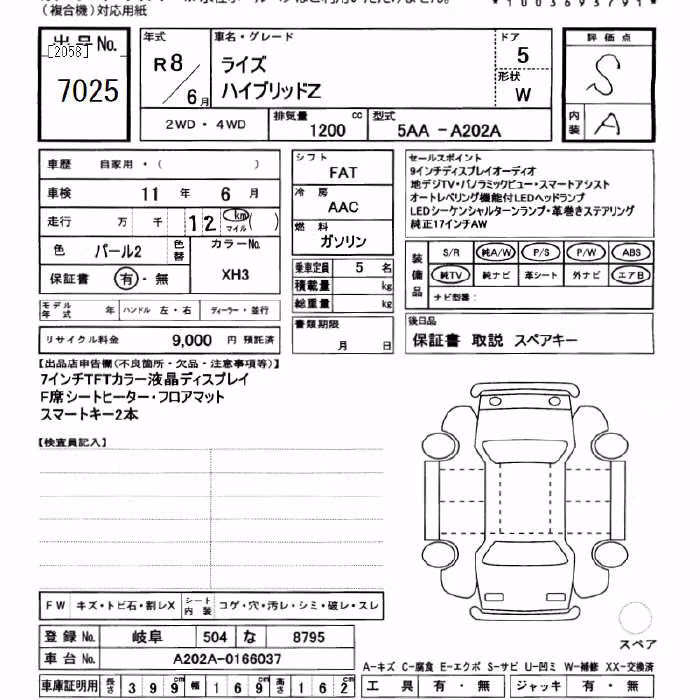 （複合機）対応用紙
*1003693791*
出品No.
[2058]
7025
年式
R8/6月
車名・グレード
ライズ
ハイブリッドZ
ドア
5
形状
W
評価点
S
内装
A
2WD・4WD
排気量 1200 cc
型式 5AA -A202A
車歴 自家用・（ ）
車検 11 年 6 月
走行 万 千 12 km マイル ( )
色 パール2 色替
カラーNo. XH3
保証書 有・無
モデル年式 年 ハンドル 左・右 ディーラー・並行
リサイクル料金 9,000 円 預託済
シフト
FAT
冷房
AAC
燃料
ガソリン
乗車定員 5 名
積載量 kg
総重量 kg
書類期限
月 日
セールスポイント
9インチディスプレイオーディオ
地デジTV・パノラミックビュー・スマートアシスト
オートレベリング機能付LEDヘッドランプ
LEDシーケンシャルターンランプ・革巻きステアリング
純正17インチAW
装備品
S/R 純A/W P/S P/W ABS
純TV 純ナビ 革シート 外ナビ エアB
ナビ型番：
後日品
保証書 取説 スペアキー
【出品店申告欄（不良箇所・欠品・注意事項等）】
7インチTFTカラー液晶ディスプレイ
F席シートヒーター・フロアマット
スマートキー2本
【検査員記入】
FW キズ・トビ石・割レX シート内装 コゲ・穴・汚レ・シミ・破レ・スレ
登録No. 岐阜 504 な 8795
車台No. A202A-0166037
車庫証明用 長さ 399cm 幅 169cm 高さ 162cm
スペア
A-キズ C-腐食 E-エクボ S-サビ U-凹ミ W-補修 XX-交換済
工具 有・無 ジャッキ 有・無